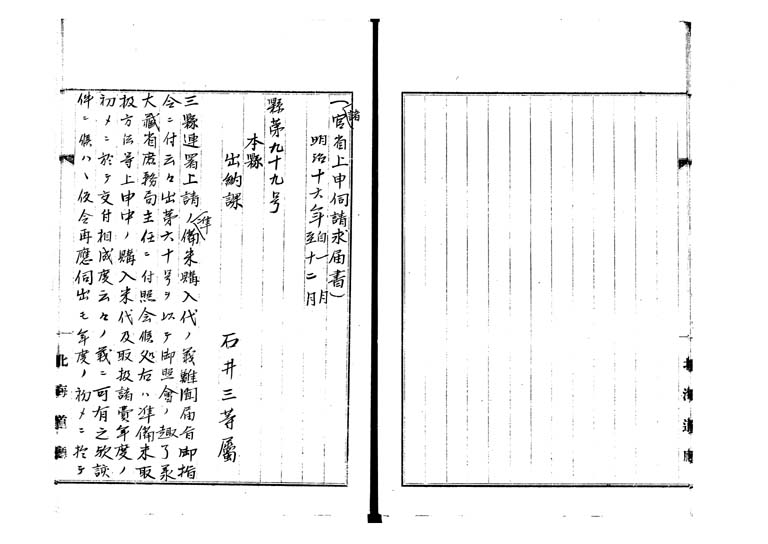 (諸官省上申伺請求届書)
明治十六年自一月至十二月
縣第九十九号
本縣
出納課
石井三等屬
三縣連署上請ノ準備米購入代ノ義難聞届旨御指
令ニ付云々出第六十号ヲ以テ御照會ノ趣了承
大藏省庶務局主任ニ付照会候処右ハ準備米取
扱方伝等上申中ノ購入米代及取扱諸費年度ノ
初メニ於テ交付相成度云々ノ義ニ可有之欤該
件ニ候ハヽ仮令再應伺出モ年度ノ初メニ於テ
北海道廳
北海道廳